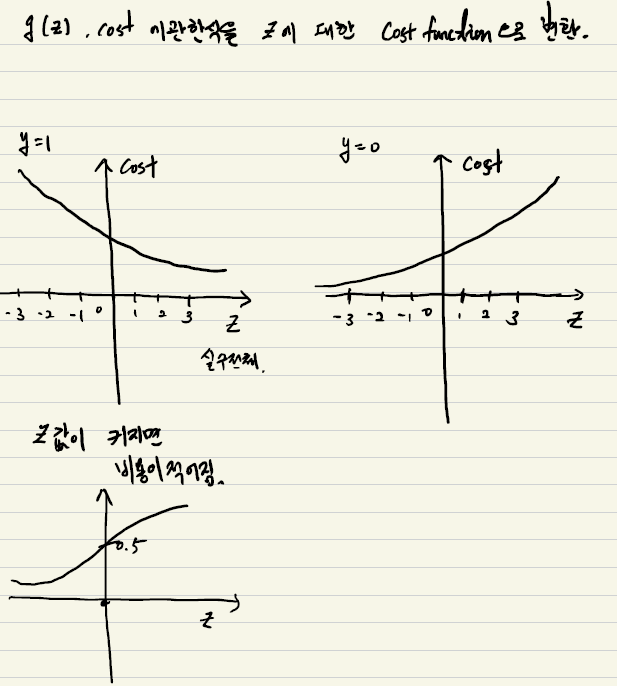 g(z), cost 에관한식을 z에 대한 Cost function으로 변환.
y=1
cost
-3 -2 -1 0 1 2 3
z
실수전체.
y=0
cost
-3 -2 -1 0 1 2 3
z
z값이 커지면
비용이적어짐.
0.5
z